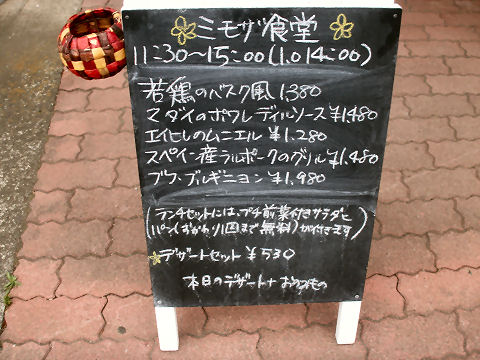 ミモザ食堂
11:30〜15:00(L.O14:00)
若鶏のバスク風 1,380
マダイのポワレ ディルソース ¥1,480
エイヒレのムニエル ¥1,280
スペイン産ラルポークのグリル ¥1,480
ブフ・ブルギニヨン ¥1,980
(ランチセットには、プチ前菜付きサラダと
パン(おかわり1回まで無料)が付きます)
デザートセット ¥530
本日のデザート+お